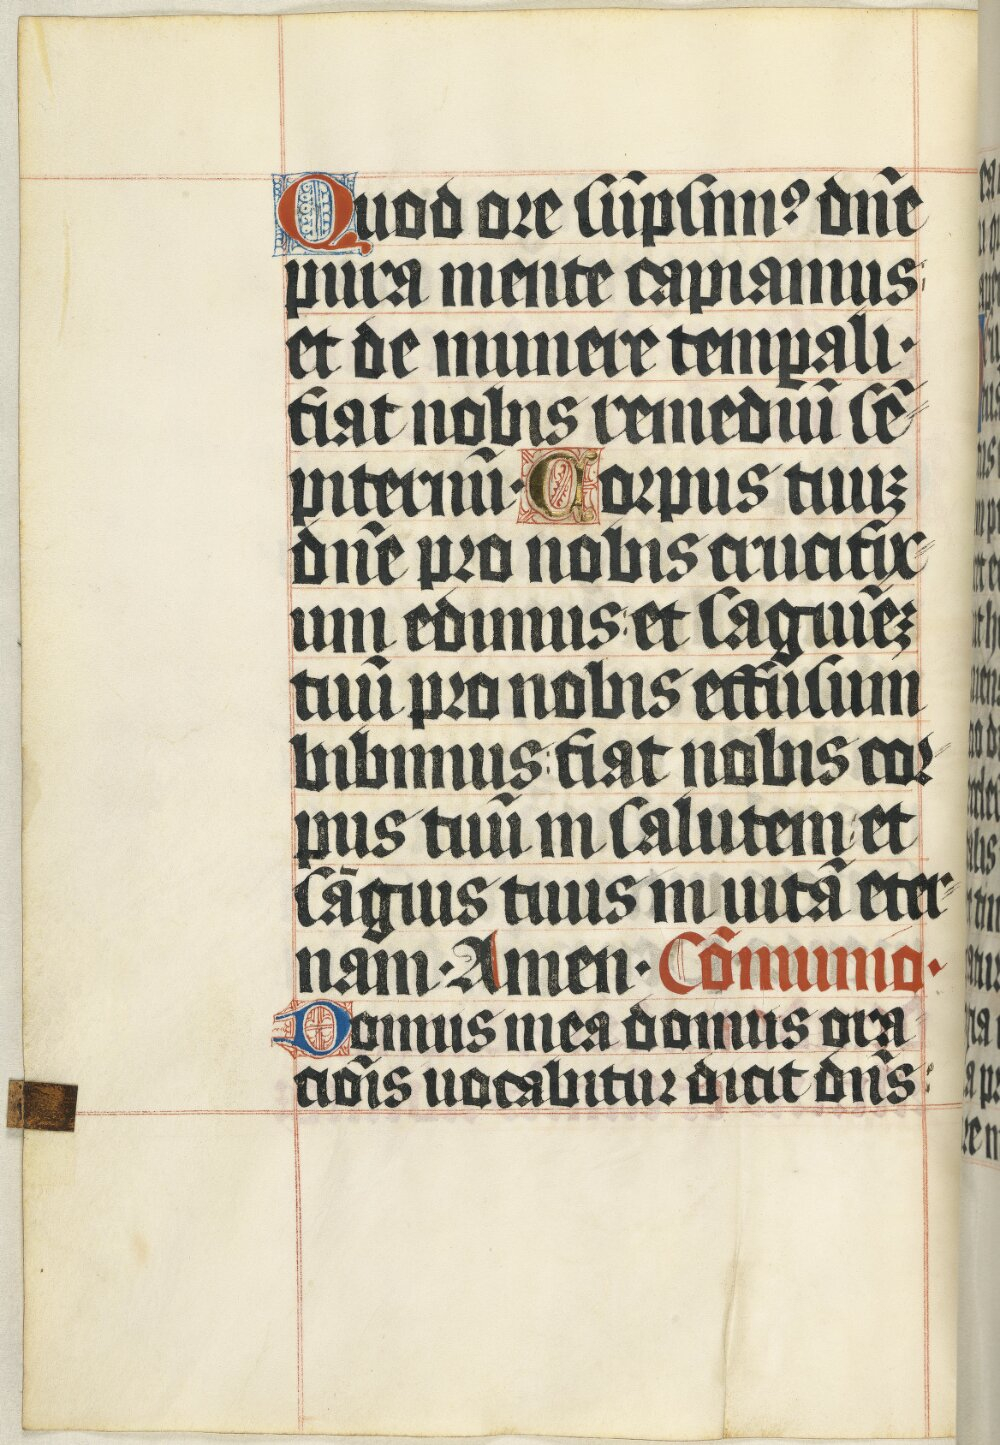 Quod ore sūpsim⁹ dn̄e
pura mente capiamus:
et de munere tempali·
fiat nobis remediū sē
piternū· Corpus tuuꝫ
dn̄e pro nobis crucifix
um edimus: et saguiēꝫ
tuū pro nobis effusum
bibimus: fiat nobis cor
pus tuū in salutem: et
sāguis tuus in uitā eter
nam· Amen· Cōmunio·
Domus mea domus ora
ciōis uocabitur dicit dn̄s: